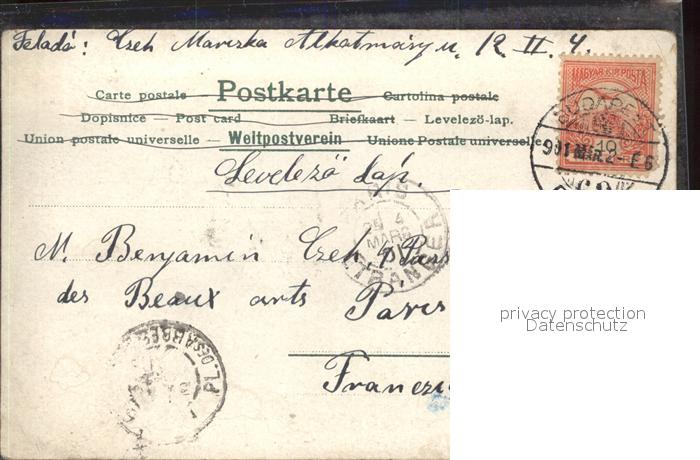 Feladó: Czeh Mariska Alkotmány u. 12. II. 4.
MAGYAR KIR. POSTA
Carte postale Postkarte Cartolina postale
Dopisnice — Post card Briefkaart — Levelező-lap.
Union postale universelle Weltpostverein Unione Postale universelle
BUDAPE
901 MÁR 2 - E6
Levelező lap.
PARIS
4
MARS
ETRANGER
M. Benjamin Czeh, 4
des Beaux arts Paris
PL. DES ABBESSES
privacy protection
Datenschutz